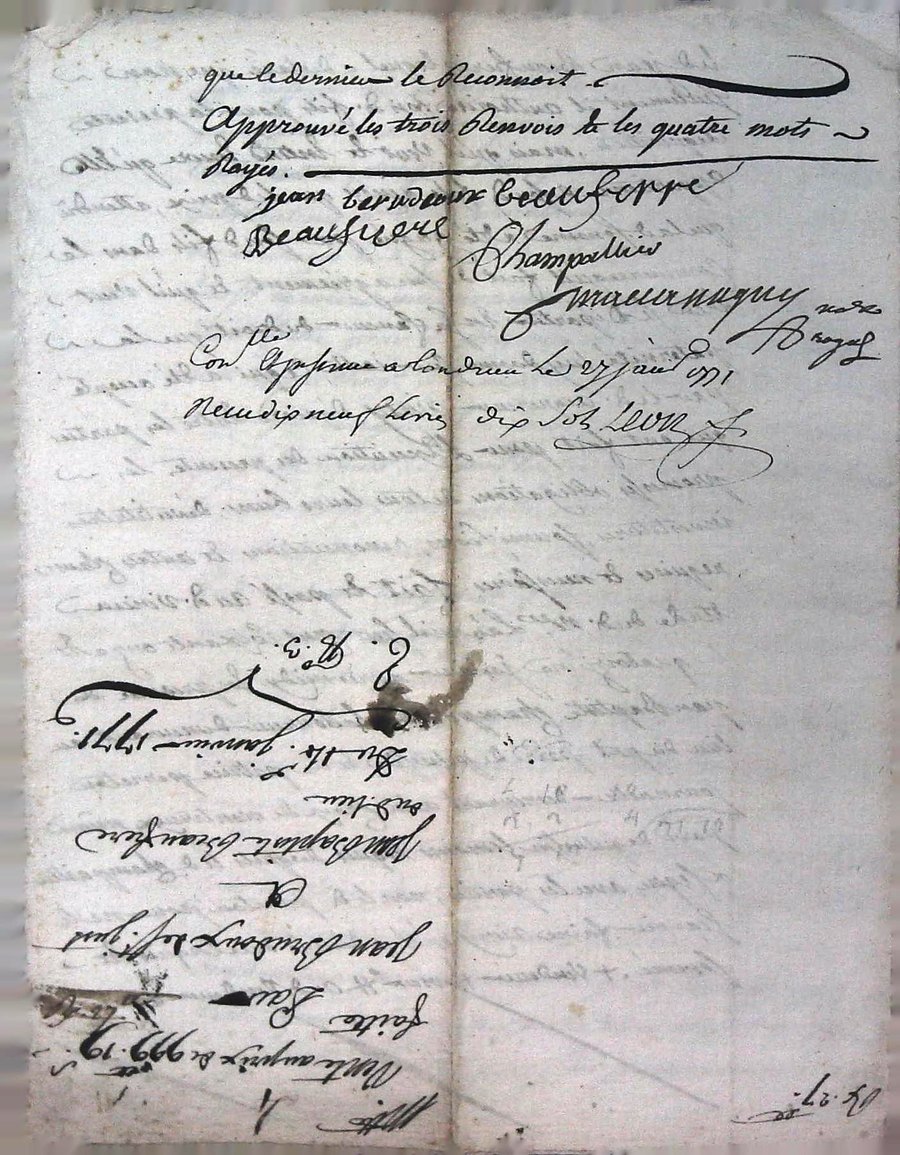 que le dernier le Reconnoit.
Approuvé les trois Renvois & les quatre mots
Rayés.
jean berudoux beaufrerre
Beaufrere
Champallier
notre
royal
Con.lle a Condrieu Le 27 janv. 1771
Recu dix neuf Livres dix Sols
Vente au prix de 999.19
faitte Par
jean Brudoux de St. just
a
jean Baptiste Beaufrere
dud. lieu
Du 14e. janvier 1771.
C. No. 3.
27.